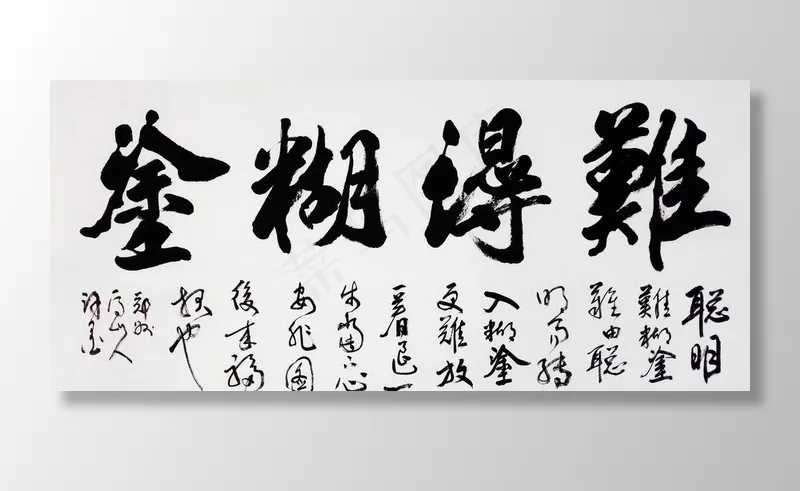 難得糊塗
聰明
難糊塗
難由聰
明而轉
入糊塗
更難放
一著退一
步當下心
安非圖
後來福
报也
山人